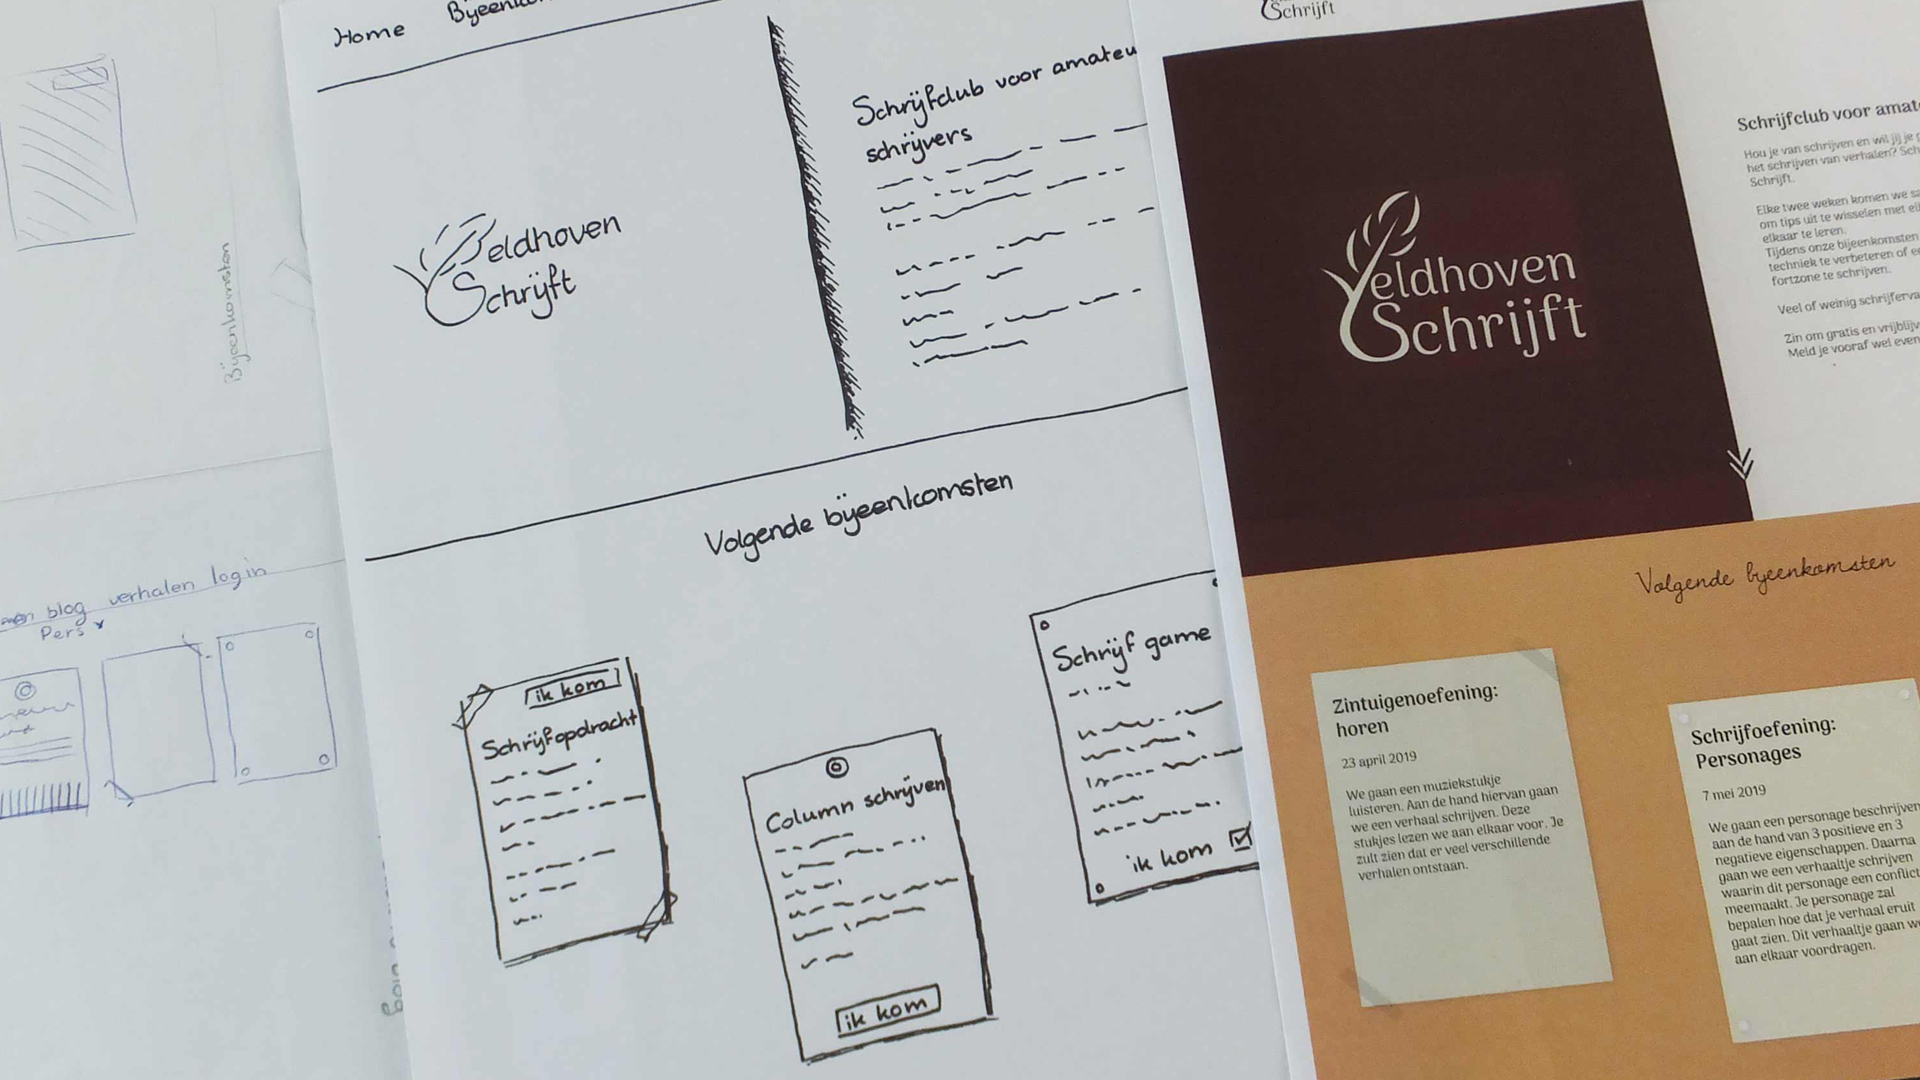 Bijeenkomsten
blog verhalen login
Pers
blog
Home
Schrijfclub voor
schrijvers
Veldhoven
Schrijft
Volgende bijeenkomsten
ik kom
Schrijfopdracht
Column schrijven
ik kom
Schrijf game
ik kom
Schrijft
Veldhoven
Schrijft
Schrijfclub voor
Hou je van schrijven en wil jij je
het schrijven van verhalen?
Schrijft.
Elke twee weken komen we
om tips uit te wisselen met
elkaar te leren.
Tijdens onze bijeenkomsten
techniek te verbeteren of
fortzone te schrijven.
Veel of weinig
Zin om gratis en
Meld je vooraf wel even
Volgende bijeenkomsten
Zintuigenoefening:
horen
23 april 2019
We gaan een muziekstukje
luisteren. Aan de hand hiervan gaan
we een verhaal schrijven. Deze
stukjes lezen we aan elkaar voor. Je
zult zien dat er veel verschillende
verhalen ontstaan.
Schrijfoefening:
Personages
7 mei 2019
We gaan een personage beschrijven
aan de hand van 3 positieve en 3
negatieve eigenschappen. Daarna
gaan we een verhaaltje schrijven
waarin dit personage een conflict
meemaakt. Je personage zal
bepalen hoe dat je verhaal eruit
gaat zien. Dit verhaaltje gaan we
aan elkaar voordragen.